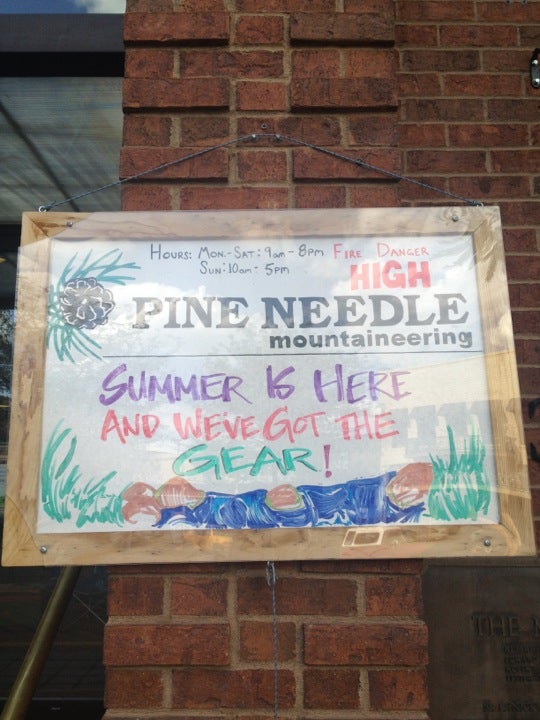 HOURS: MON.-SAT: 9am - 8pm FIRE DANGER
SUN: 10am - 5pm HIGH
PINE NEEDLE
mountaineering
SUMMER IS HERE
AND WE'VE GOT THE
GEAR!
THE